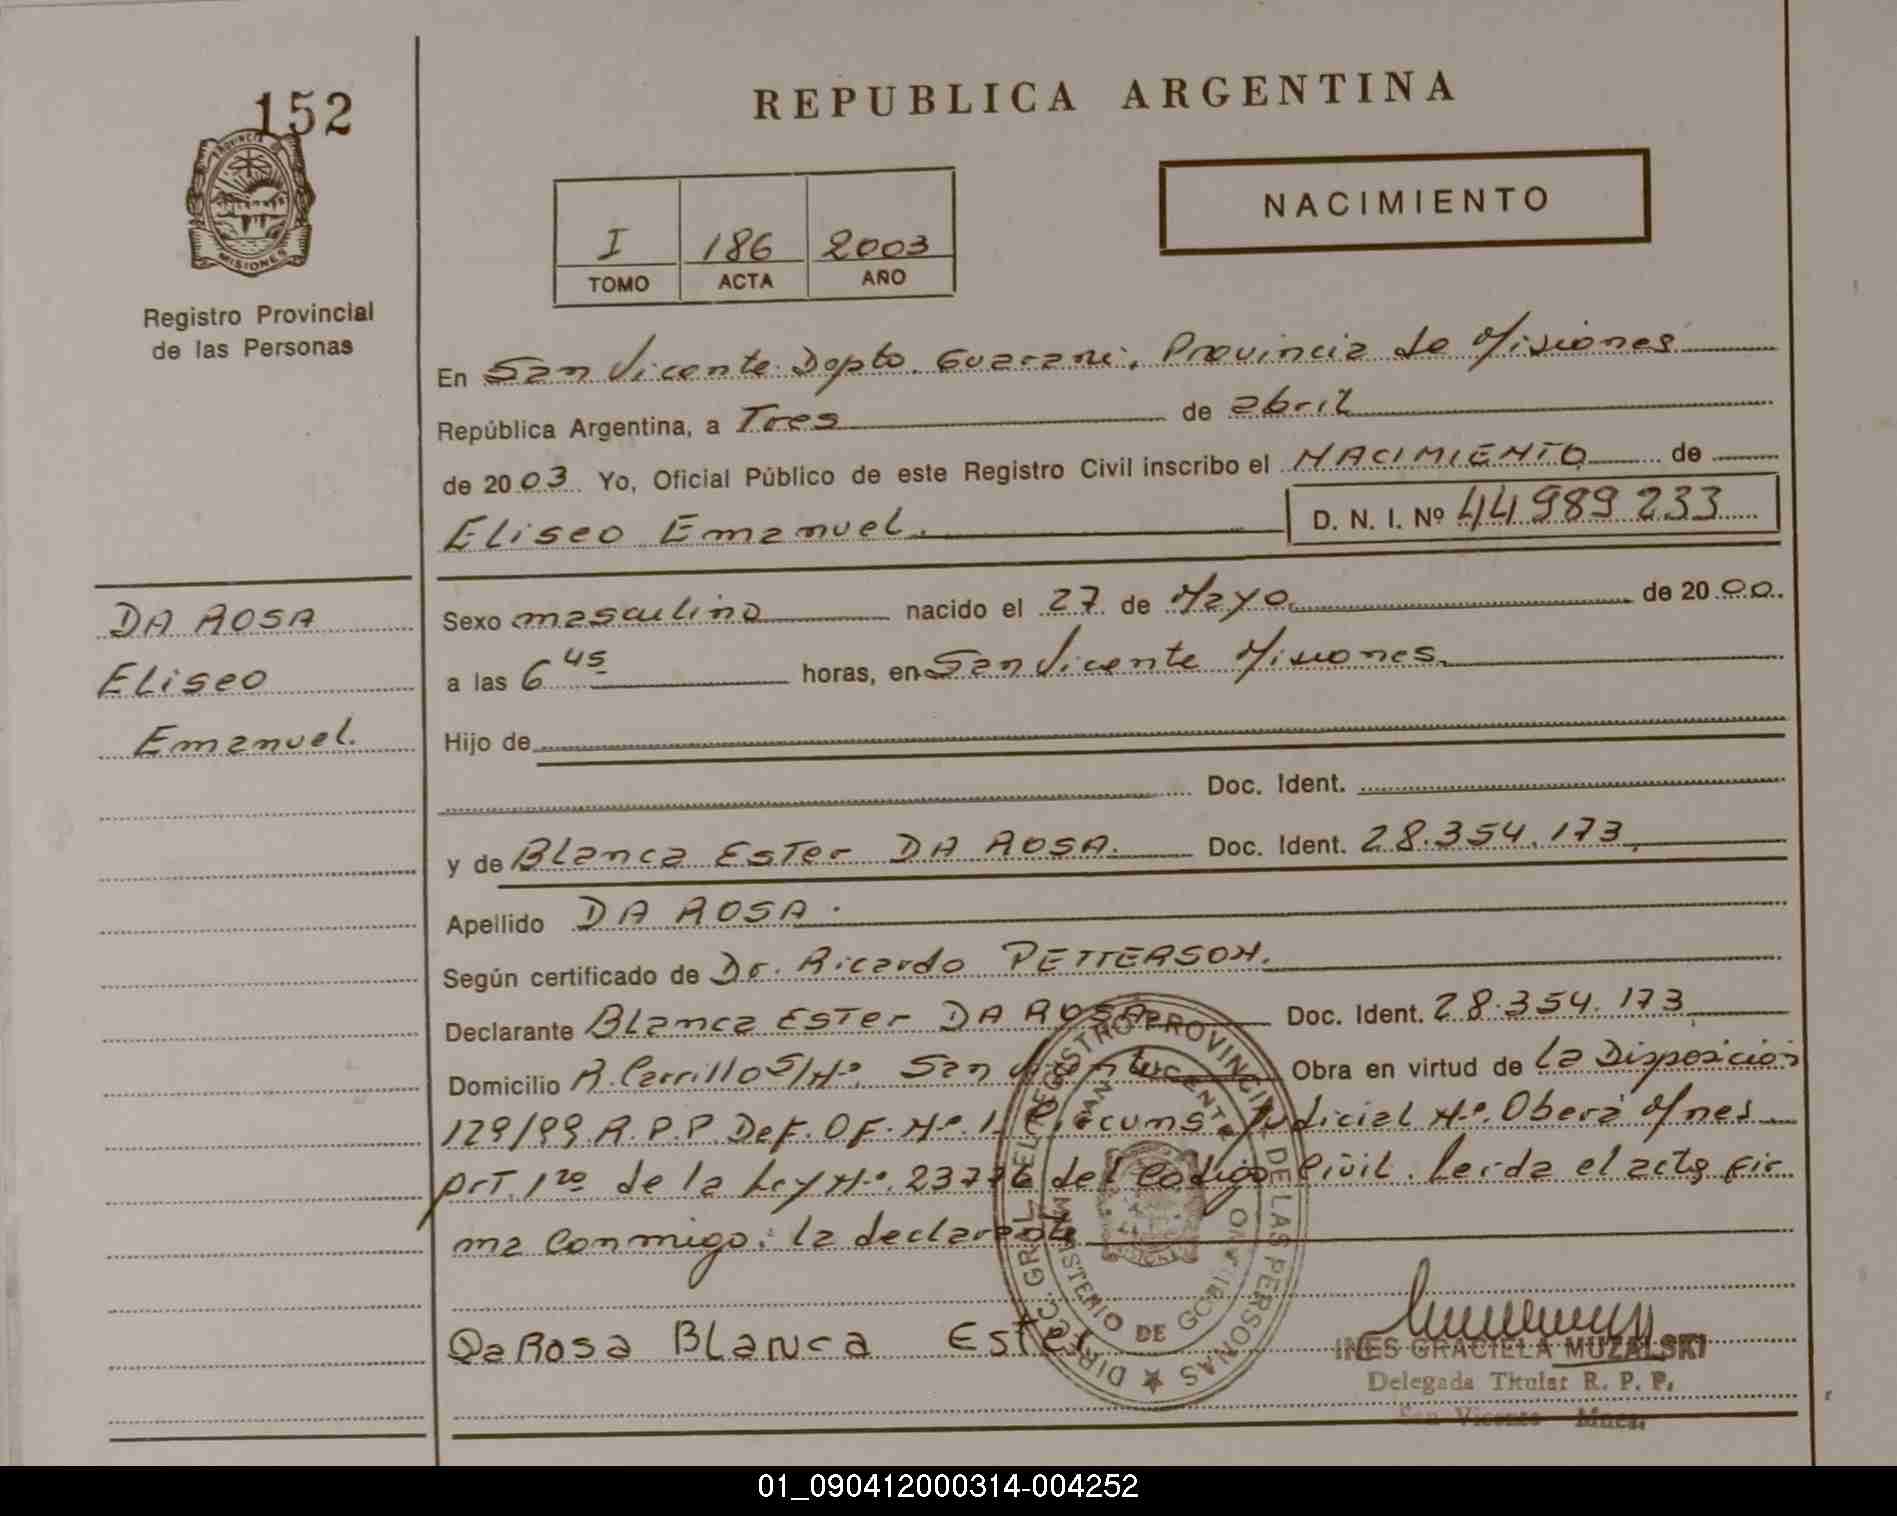 152
PROVINCIA DE
MISIONES
Registro Provincial
de las Personas
REPUBLICA ARGENTINA
NACIMIENTO
I 186 2003
TOMO ACTA AÑO
En San Vicente Dopto. Guarani. Provincia de Misiones
República Argentina, a Tres de abril
de 2003 Yo, Oficial Público de este Registro Civil inscribo el NACIMIENTO de
Eliseo Emanuel. D. N. I. Nº 44.989.233
DA ROSA
Eliseo
Emanuel.
Sexo masculino nacido el 27 de Mayo de 2000.
a las 6 45 horas, en San Vicente Misiones.
Hijo de
Doc. Ident.
y de Blanca Ester DA ROSA. Doc. Ident. 28.354.173
Apellido DA ROSA.
Según certificado de Dr. Ricardo PETTERSON.
Declarante Blanca Ester DA ROSA Doc. Ident. 28.354.173
Domicilio R. Carrillo S/Nº. San Vicente Obra en virtud de la Disposicion
129/99 R.P.P Def. Of. Nº. 1. Circuns. Judicial Nº. Obera Mnes
Art. 1ro de la Ley Nº. 23776 del Codigo Civil. Leida el acta fir
ma conmigo: la declarante
Da Rosa Blanca Ester
DIRECC. GRAL. DEL REGISTRO PROVINCIAL DE LAS PERSONAS
SAN VICENTE
MINISTERIO DE GOBIERNO
INES GRACIELA MUZALSKI
Delegada Titular R. P. P.
San Vicente Mnes.
01_090412000314-004252